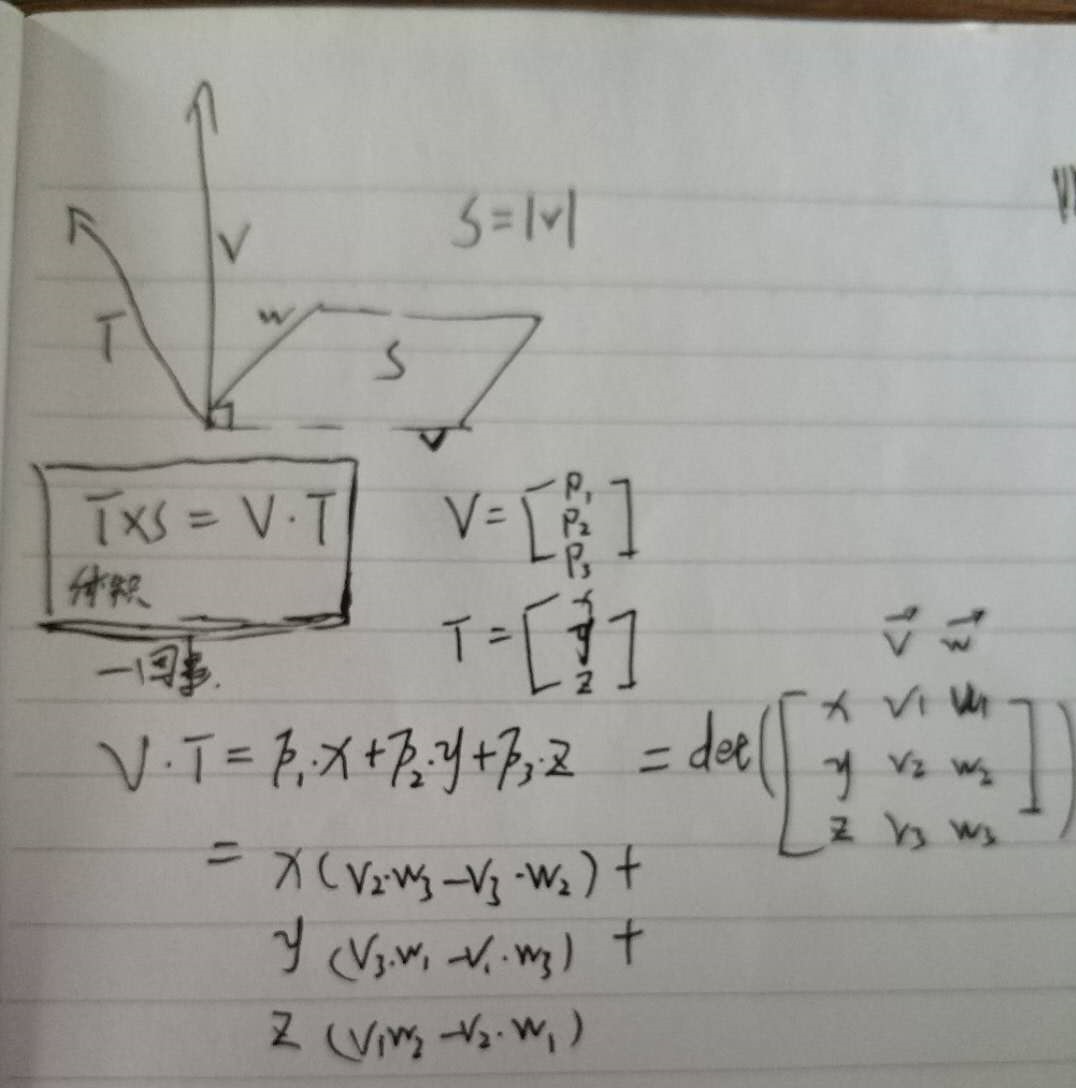 V
S=|v|
T
w
S
v
T×S = V·T
体积
一回事.
V = [P₁ P₂ P₃]
T = [x y z]
v⃗ w⃗
V·T = p₁·x+p₂·y+p₃·z = det([x v₁ w₁
y v₂ w₂
z v₃ w₃])
= x(v₂·w₃-v₃·w₂)+
y(v₃·w₁-v₁·w₃)+
z(v₁w₂-v₂·w₁)